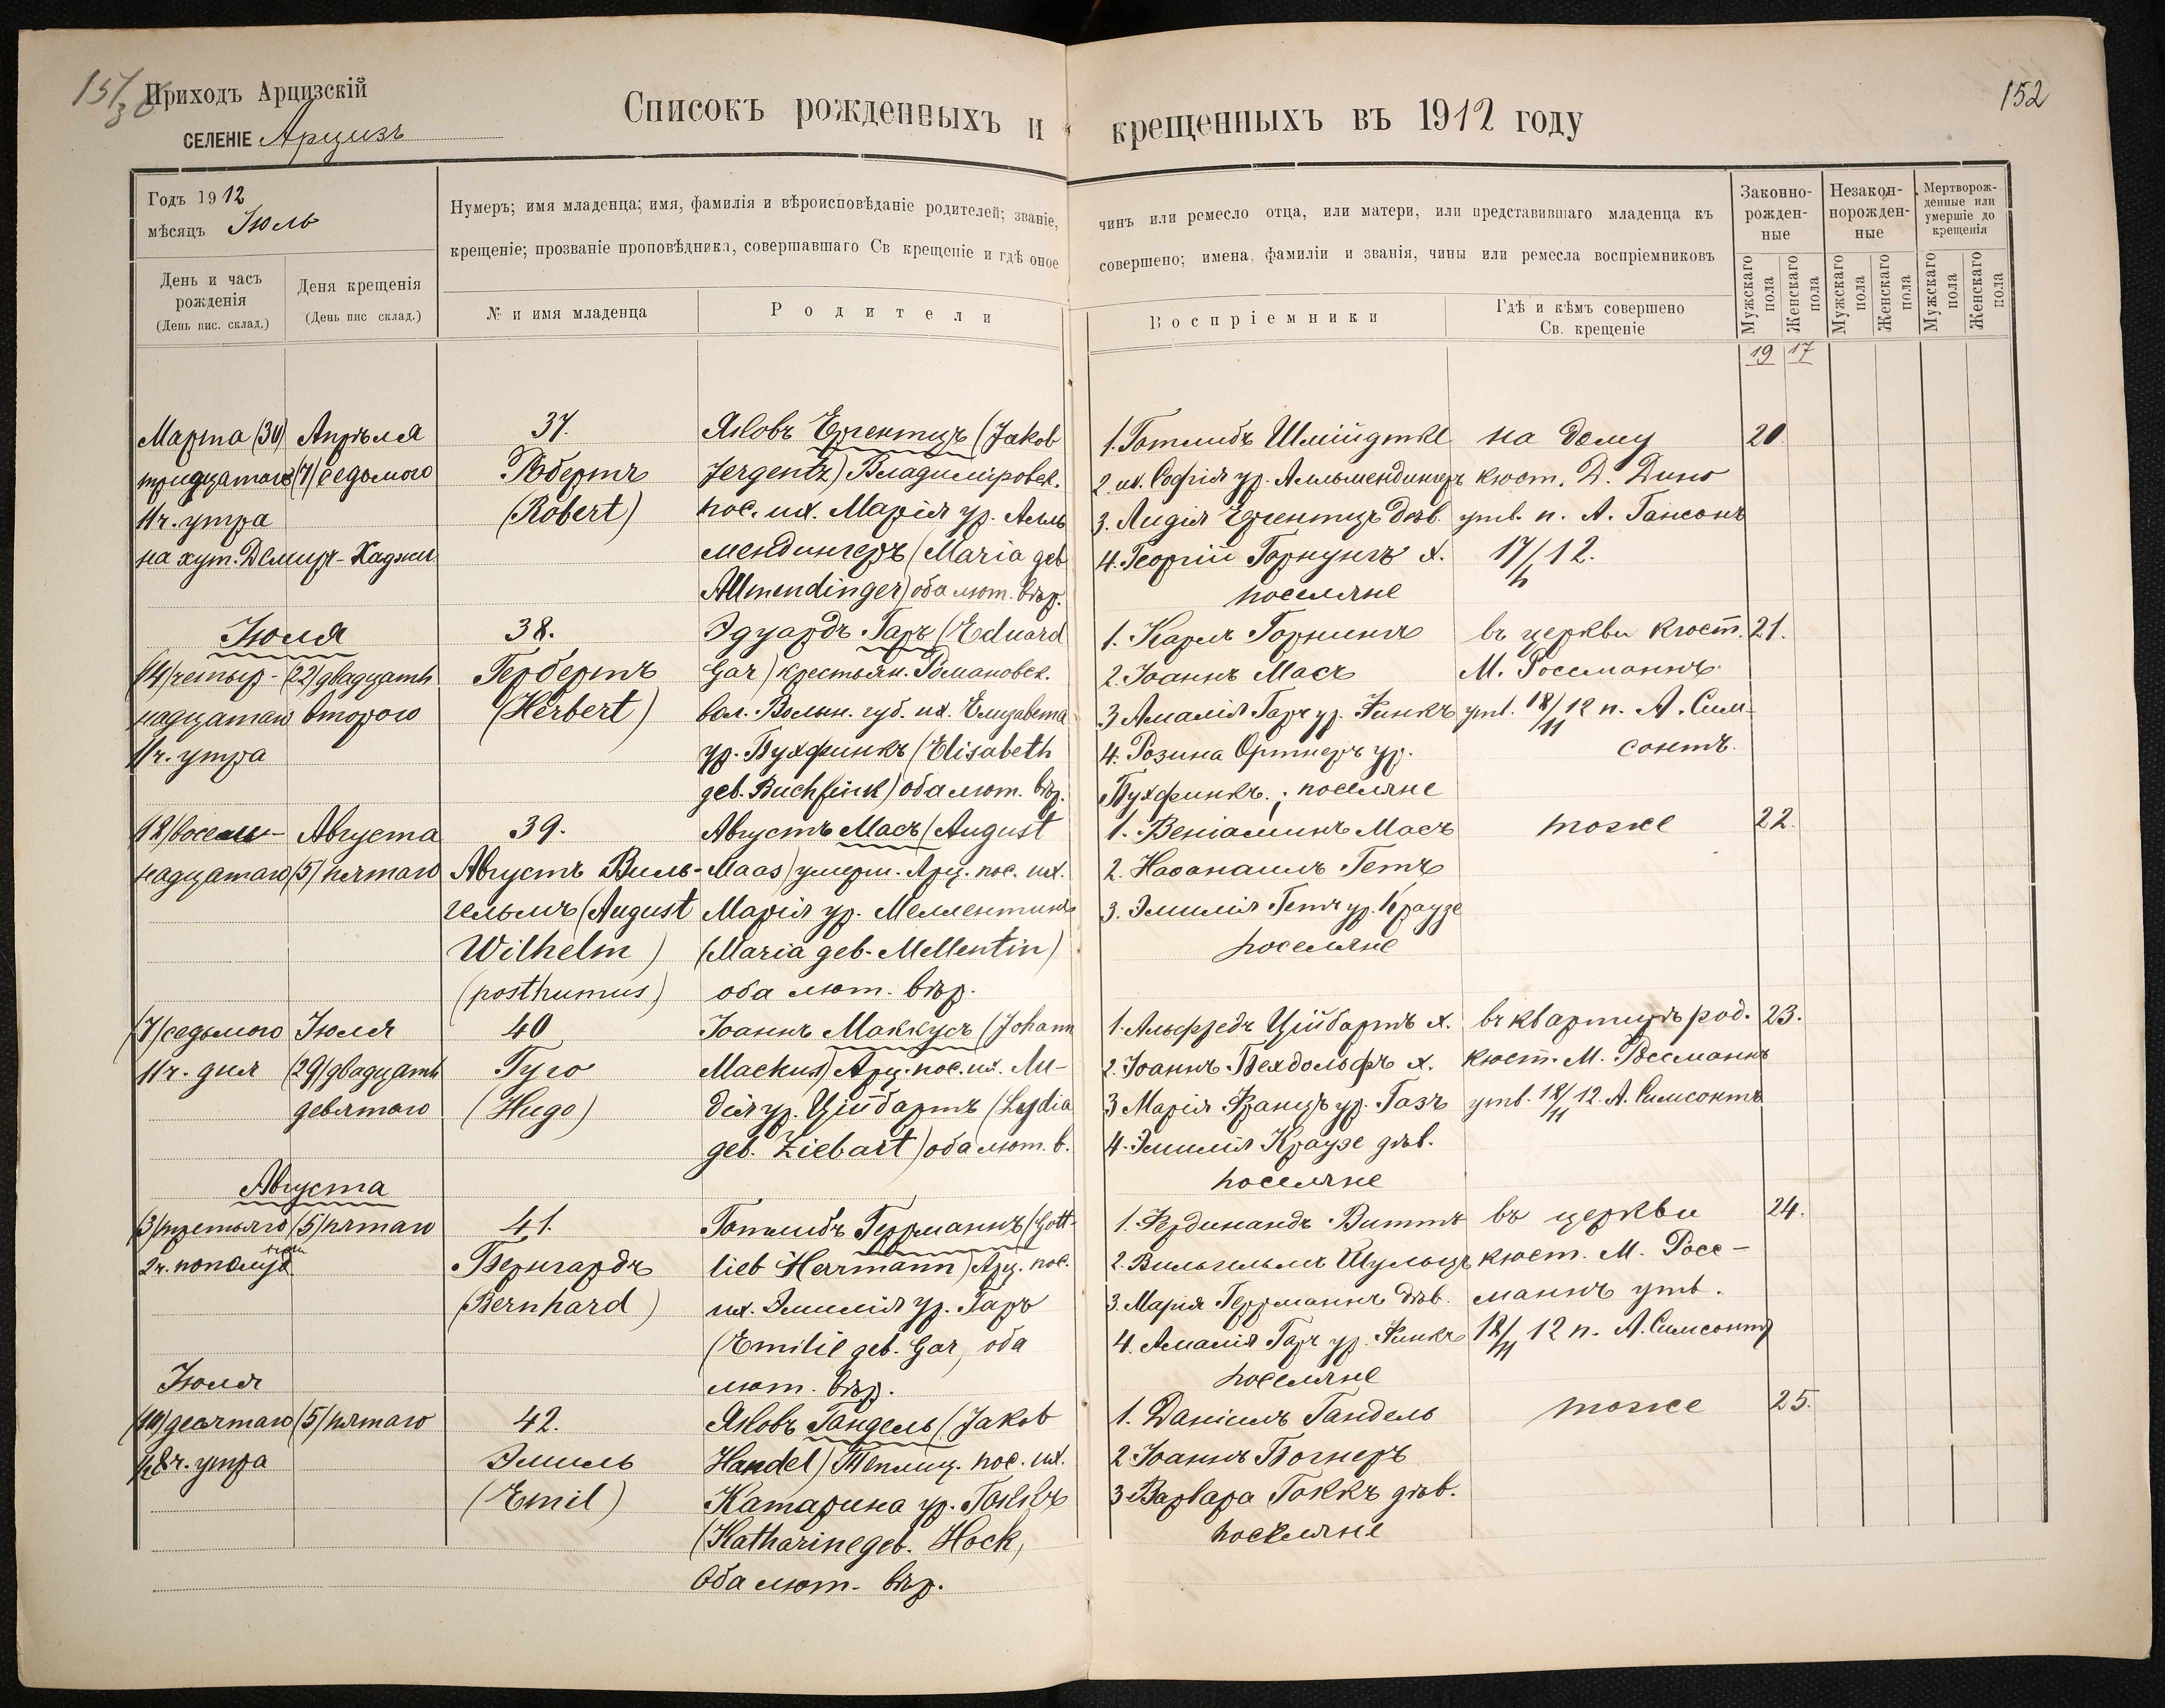 Приходъ Арцизскій
СЕЛЕНІЕ Арцизъ
Списокъ рожденныхъ и крещенныхъ въ 1912 году
152
Годъ 1912
мѣсяцъ Іюль
День и часъ рожденія
(День пис. склад.)
Деня крещенія
(День пис склад.)
Нумеръ; имя младенца; имя, фамилія и вѣроисповѣданіе родителей; званіе, чинъ или ремесло отца, или матери, или представившаго младенца къ
крещеніе; прозваніе проповѣдника, совершавшаго Св крещеніе и гдѣ оное совершено; имена, фамиліи и званія, чины или ремесла воспріемниковъ
№ и имя младенца
Родители
Воспріемники
Гдѣ и кѣмъ совершено
Св. крещеніе
Законно-рожден-ные
Незакон-норожден-ные
Мертворож-денные или умершіе до крещенія
Мужскаго пола
Женскаго пола
Мужскаго пола
Женскаго пола
Мужскаго пола
Женскаго пола
19 17
Марта (30)
тридцатаго
11 ч. утра
на хут. Демир-Хаджи
Апрѣля
(7) седьмого
37.
Робертъ
(Robert)
Яковъ Ергентцъ (Jakob
Jergentz) Владиміровск.
пос. их. Марія ур. Алль
мендингеръ (Maria geb
Allmendinger) оба лют. вѣр.
1. Готлибъ Шмійдтке
2. их. Софія ур. Алльмендингеръ
3. Лидія Ергентцъ дѣв.
4. Георгій Горнунгъ х.
поселяне
на дому
кюст. Д. Дино
утв. п. А. Гансонъ
20.
Іюля
(14) четыр-
надцатаго
11 ч. утра
(22) двадцать
второго
38.
Гербертъ
(Herbert)
Эдуардъ Гаръ (Eduard
Gar) крестьян. Романовск.
вол. Волын. губ. их. Елизавета
ур. Бухфинкъ (Elisabeth
geb. Buchfink) оба лют. вѣр.
1. Карлъ Горнингъ
2. Іоаннъ Масъ
3 Амалія Гаръ ур. Финкъ
4. Розина Ортнеръ ур.
Бухфинкъ.; поселяне
въ церкви кюст.
М. Россманнъ.
утв. 18/11 12 п. А. Сим-
сонтъ.
21.
(18) восем-
надцатаго
Августа
(5) пятаго
39.
Августъ Виль-
гельмъ (August
Wilhelm)
(posthumus)
Августъ Масъ (August
Maas) умерш. Арц. пос. их.
Марія ур. Меллентинъ
(Maria geb. Mellentin)
оба лют. вѣр.
1. Веніаминъ Масъ
2. Наѳанаилъ Гетъ
3. Эмилія Гетъ ур. Краузе
поселяне
тоже
22.
(7) седьмого
11 ч. дня
Іюля
(29) двадцать
девятаго
40
Гуго
(Hugo)
Іоаннъ Маккусъ (Johann
Mackus) Арц. пос. их. Ли-
дія ур. Цийбартъ (Lydia
geb. Ziebart) оба лют. в.
1. Альфредъ Цийбартъ х.
2. Іоаннъ Бехдольфъ х.
3 Марія Францъ ур. Газъ
4. Эмилія Краузе дѣв.
поселяне
въ квартирѣ род.
кюст. М. Россманнъ
утв. 18/11 12. А. Симсонтъ
23.
Августа
(3) третьяго
2 ч. пополудн
(5) пятаго
41.
Бернгардъ
(Bernhard)
Готлибъ Геррманнъ (Gott-
lieb Herrmann) Арц. пос.
их. Эмилія ур. Гаръ
(Emilie geb. Gar, оба
лют. вѣр.
1. Фердинандъ Виттъ
2. Вильгельмъ Шульцъ
3. Марія Геррманнъ дѣв.
4. Амалія Гаръ ур. Финкъ
поселяне
въ церкви
кюст. М. Росс-
маннъ утв.
18/11 12 п. А. Симсонтъ
24.
Іюля
(10) десятаго
½8 ч. утра
(5) пятаго
42.
Эмиль
(Emil)
Яковъ Гандель (Jakob
Handel) Теплиц. пос. их.
Катарина ур. Гоккъ
(Katharine geb. Hock,
оба лют. вѣр.
1. Даніилъ Гандель
2 Іоаннъ Вогнеръ
3 Варвара Гоккъ дѣв.
поселяне
тоже
25.